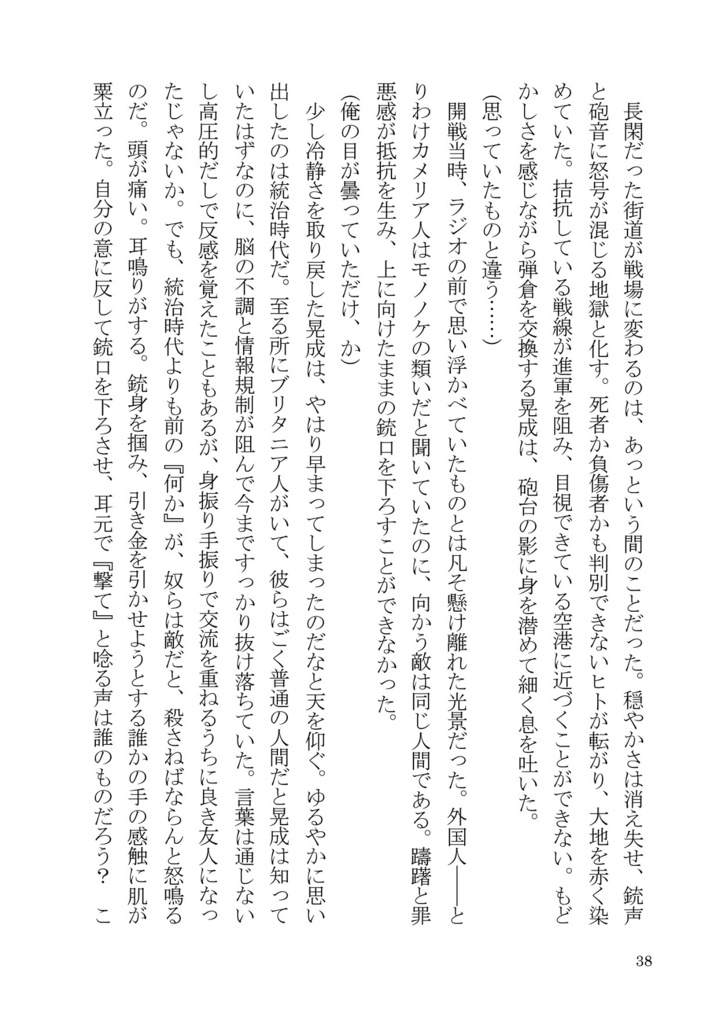 長閑だった街道が戦場に変わるのは、あっという間のことだった。穏やかさは消え失せ、銃声
と砲音に怒号が混じる地獄と化す。死者か負傷者かも判別できないヒトが転がり、大地を赤く染
めていた。拮抗している戦線が進軍を阻み、目視できている空港に近づくことができない。もど
かしさを感じながら弾倉を交換する晃成は、砲台の影に身を潜めて細く息を吐いた。
(思っていたものと違う……)
開戦当時、ラジオの前で思い浮かべていたものとは凡そ懸け離れた光景だった。外国人――と
りわけカメリア人はモノノケの類いだと聞いていたのに、向かう敵は同じ人間である。躊躇と罪
悪感が抵抗を生み、上に向けたままの銃口を下ろすことができなかった。
(俺の目が曇っていただけ、か)
少し冷静さを取り戻した晃成は、やはり早まってしまったのだなと天を仰ぐ。ゆるやかに思い
出したのは統治時代だ。至る所にブリタニア人がいて、彼らはごく普通の人間だと晃成は知って
いたはずなのに、脳の不調と情報規制が阻んで今まですっかり抜け落ちていた。言葉は通じない
し高圧的だしで反感を覚えたこともあるが、身振り手振りで交流を重ねるうちに良き友人になっ
たじゃないか。でも、統治時代よりも前の『何か』が、奴らは敵だと、殺さねばならんと怒鳴る
のだ。頭が痛い。耳鳴りがする。銃身を掴み、引き金を引かせようとする誰かの手の感触に肌が
粟立った。自分の意に反して銃口を下ろさせ、耳元で『撃て』と唸る声は誰のものだろう？　こ
38